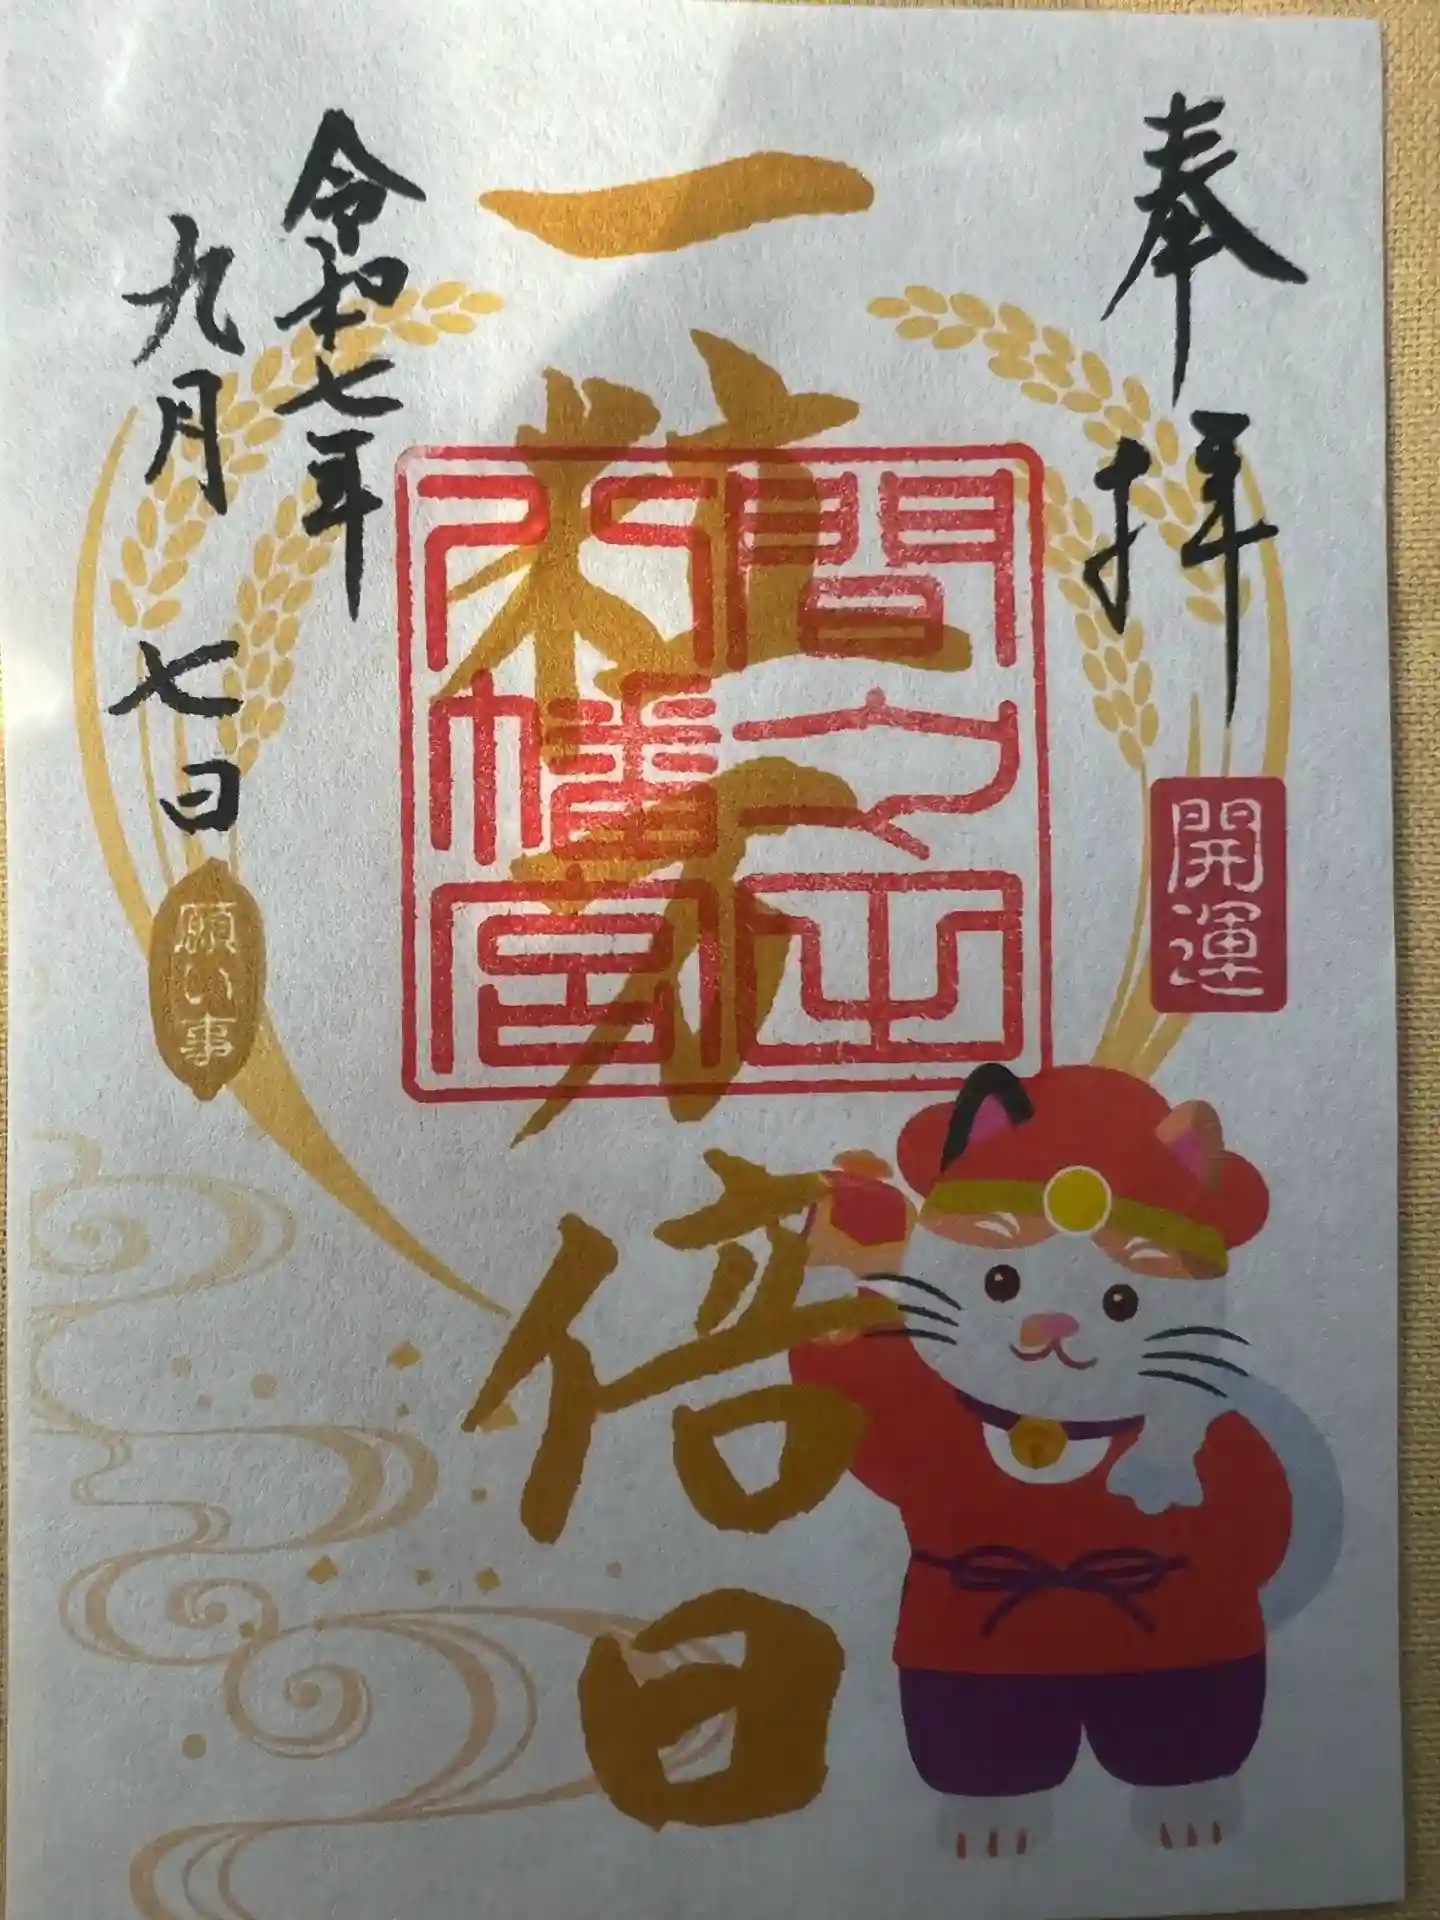 奉拝
開運
一粒万倍日
八幡宮
令和七年
九月七日
願い事